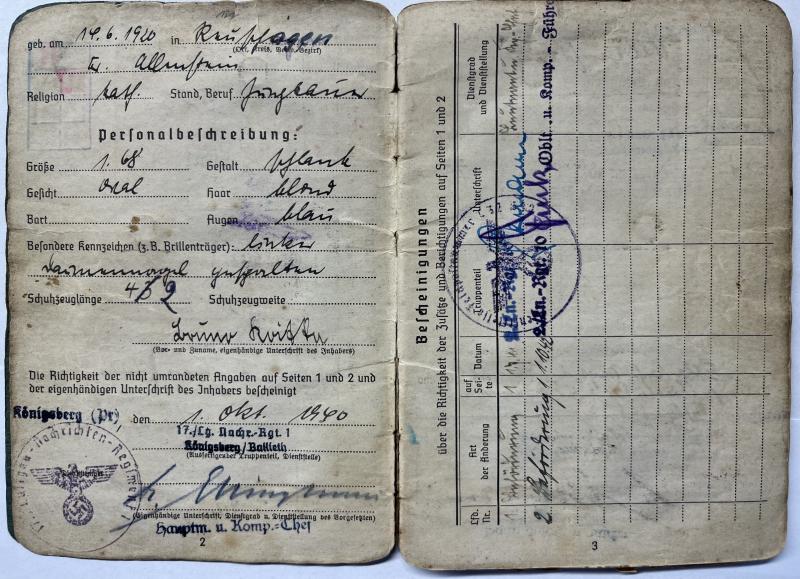 geb. am 19.6.1920 in
(Ort, Kreis, Verw.-Bezirk)
Kr. Allenstein
Religion kath. Stand, Beruf Jungbauer
Personalbeschreibung:
Größe 1.68 Gestalt schlank
Gesicht oval Haar blond
Bart Augen blau
Besondere Kennzeichen (z.B. Brillenträger): linker
Daumennagel gespalten
Schuhzeuglänge 42 Schuhzeugweite
Bruno
(Vor- und Zuname, eigenhändige Unterschrift des Inhabers)
Die Richtigkeit der nicht umrandeten Angaben auf Seiten 1 und 2 und
der eigenhändigen Unterschrift des Inhabers bescheinigt
Königsberg (Pr) den 1. Okt. 1940
17./Lg. Nachr.-Rgt. 1
Königsberg/Ballieth
(Ausfertigender Truppenteil, Dienststelle)
(Eigenhändige Unterschrift, Dienstgrad u. Dienststellung des Vorgesetzten)
Hauptm. u. Komp.-Chef
2
Bescheinigungen
über die Richtigkeit der Zusätze und Berichtigungen auf Seiten 1 und 2
Lfd. Nr. Art der Änderung auf Seite Datum Truppenteil Unterschrift Dienstgrad und Dienststellung
1
2. Beförderung 1
Oblt. u. Komp.-Führer
3